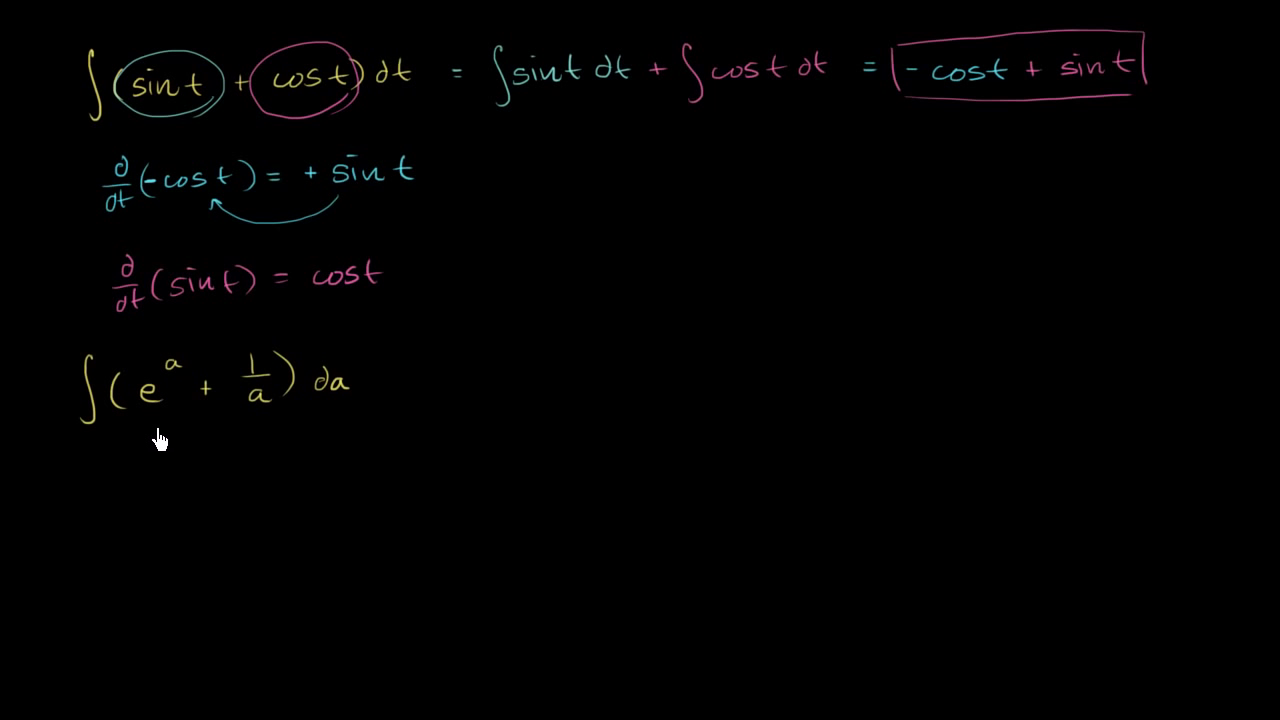 ∫(sin t + cos t) dt = ∫sin t dt + ∫cos t dt = -cos t + sin t
d/dt(-cos t) = + sin t
d/dt(sin t) = cos t
∫(e^a + 1/a) da